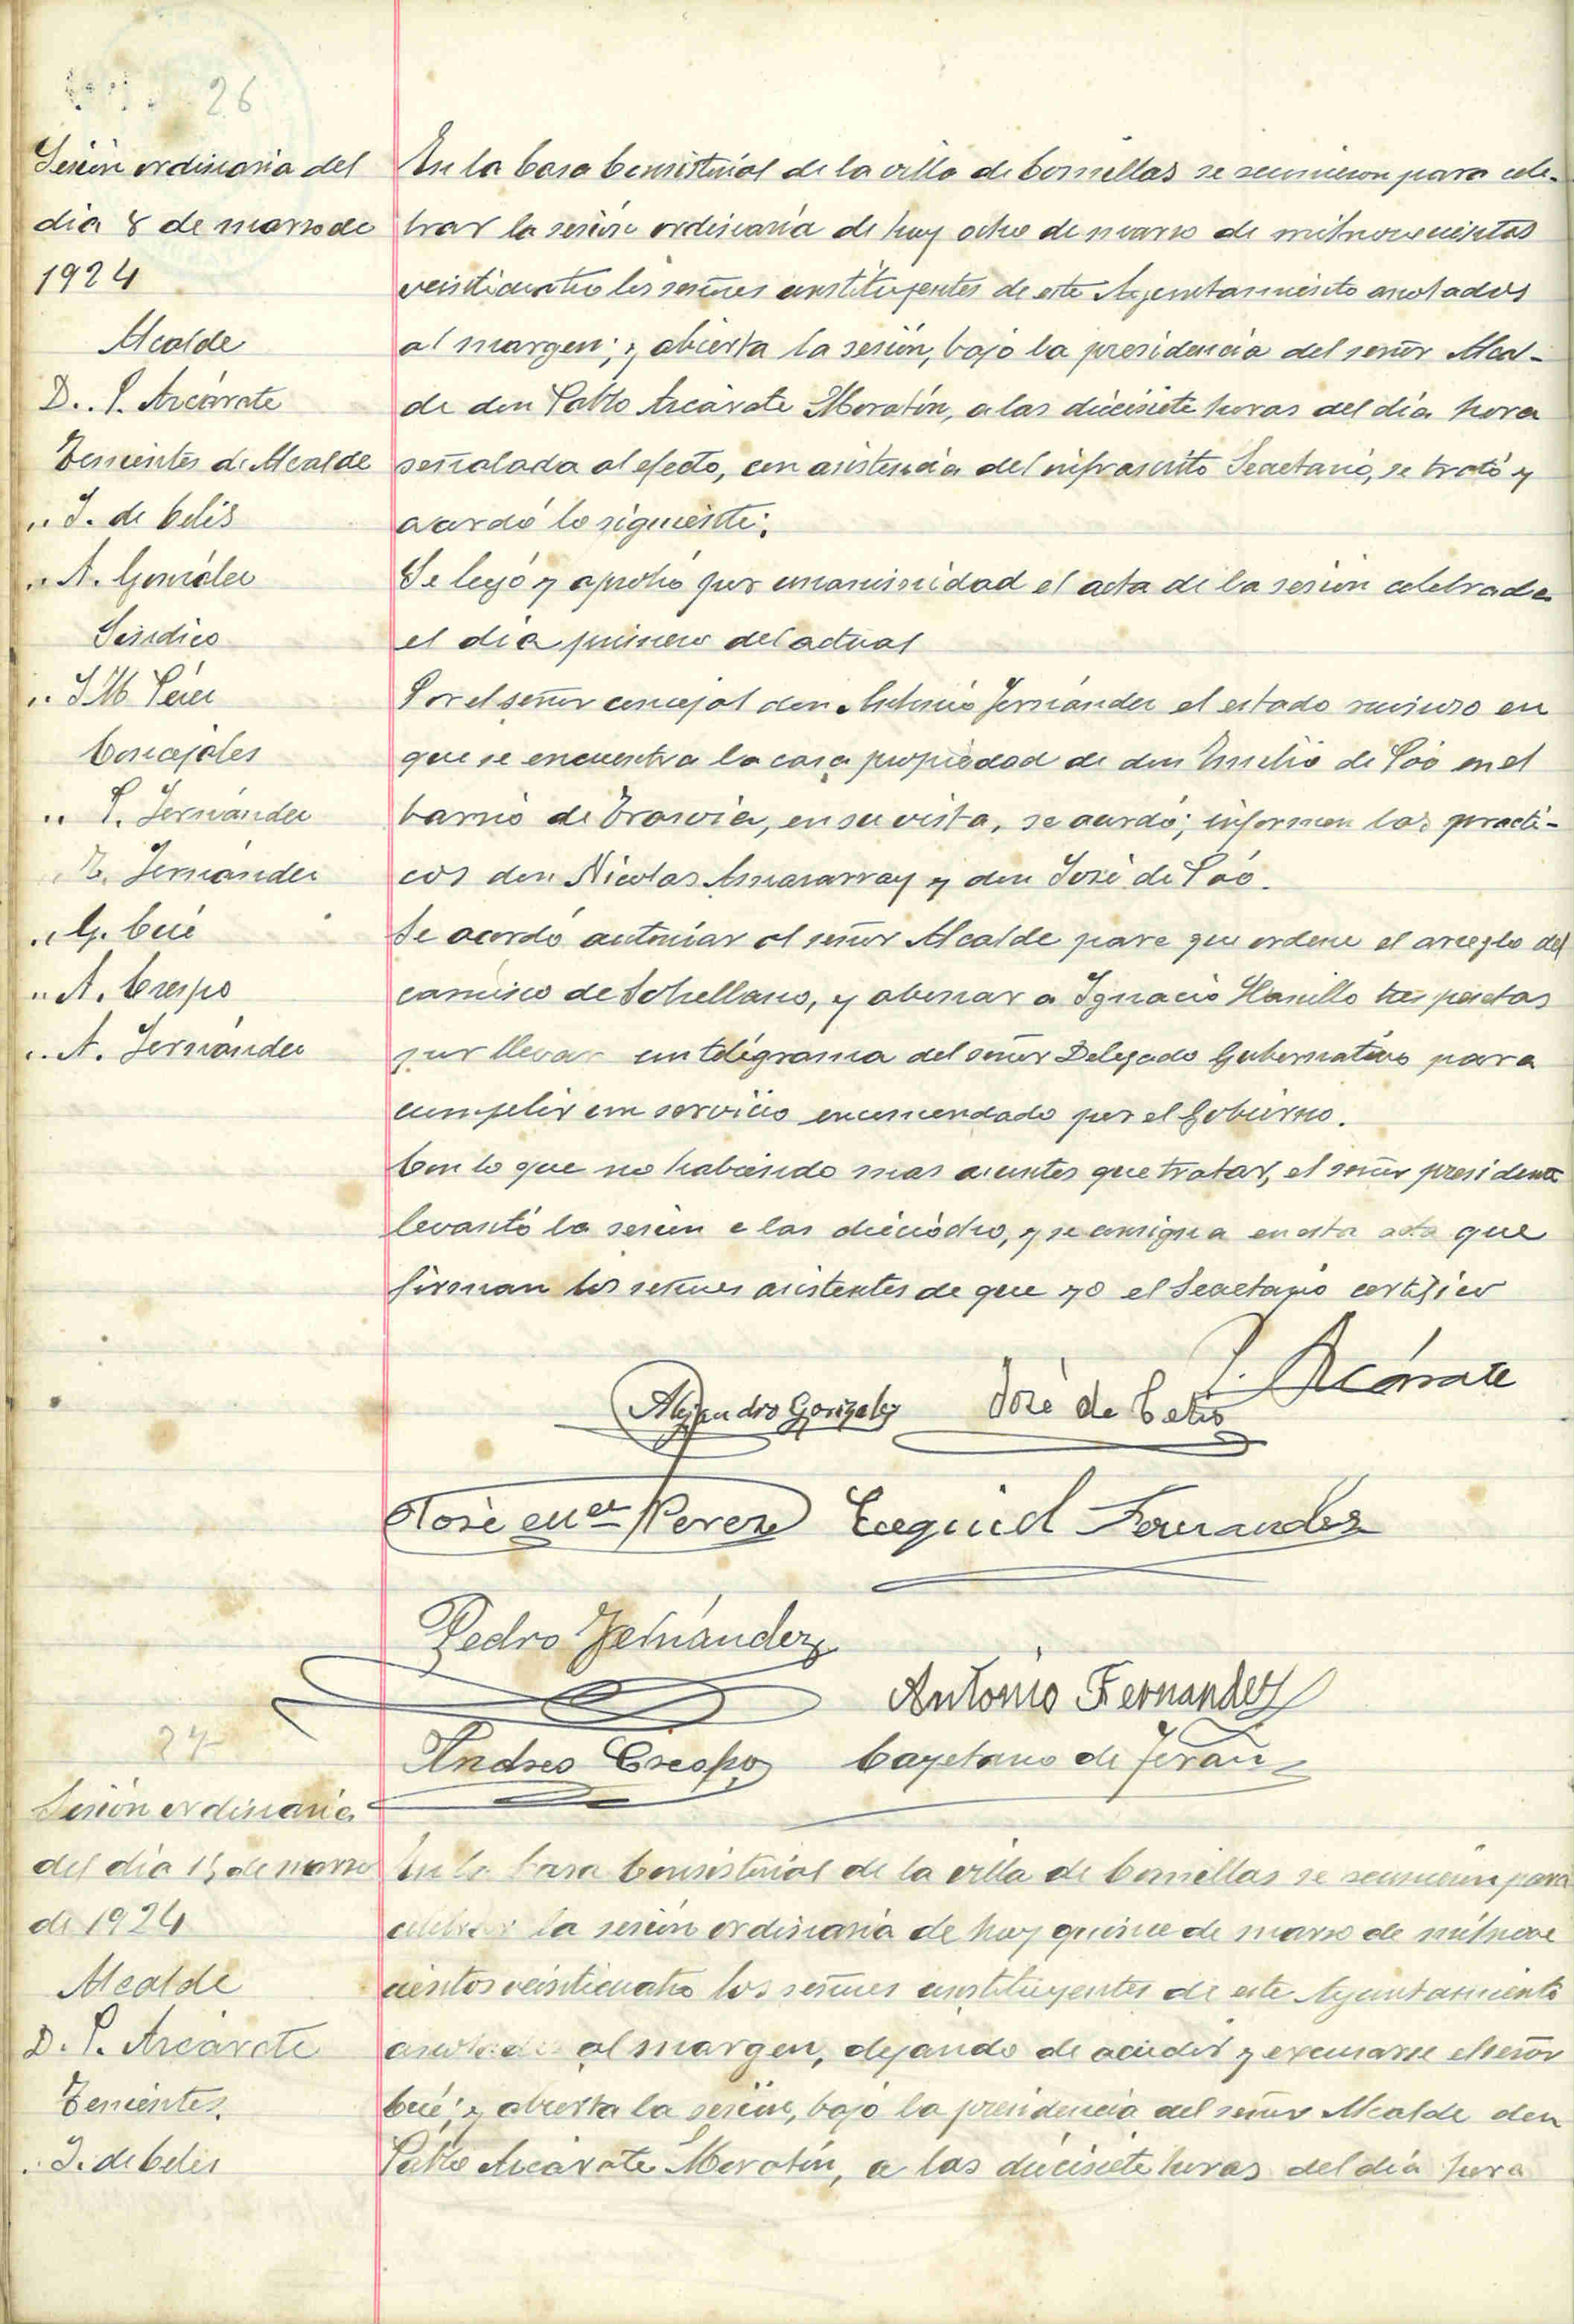 26
Sesión ordinaria del
día 8 de marzo de
1924
Alcalde
D. P. Arcárate
Tenientes de Alcalde
" J. de Celis
" A. González
Síndico
" J M Pérez
Concejales
" P. Fernández
" E. Fernández
" G. Cué
" A. Crespo
" A. Fernández
En la Casa Consistorial de la villa de Comillas se reunieron para cele-
brar la sesión ordinaria de hoy ocho de marzo de mil novecientos
veinticuatro los señores constituyentes de este Ayuntamiento anotados
al margen; y abierta la sesión, bajo la presidencia del señor Alcal-
de don Pablo Arcárate Moratín, a las diecisiete horas del día hora
señalada al efecto, con asistencia del infrascrito Secretario, se trató y
acordó lo siguiente:
Se leyó y aprobó por unanimidad el acta de la sesión celebrada
el día primero del actual
Por el señor concejal don Antonio Fernández el estado ruinoso en
que se encuentra la casa propiedad de don Emilio de Póo en el
barrio de Trasvía, en su vista, se acordó; informen los prácti-
cos don Nicolas y don José de Póo.
Se acordó autorizar al señor Alcalde para que ordene el arreglo del
camino de Sobrellano, y abonar a Ignacio tres pesetas
por llevar un telégrama del señor Delegado Gubernativo para
cumplir un servicio encomendado por el Gobierno.
Con lo que no habiendo mas asuntos que tratar, el señor presidente
levantó la sesión a las dieciócho, y se consigna en esta acta que
firman los señores asistentes de que yo el Secretario certifico
P. Arcárate
Alejandro González José de Celis
José Mª Perez Ezequiel Fernandez
Pedro Fernández
Antonio Fernandez
Andres Crespo Cayetano de Terán
27
Sesión ordinaria
del día 15 de marzo
de 1924
Alcalde
D. P. Arcárate
Tenientes
" J. de Celis
En la Casa Consistorial de la villa de Comillas se reunieron para
celebrar la sesión ordinaria de hoy quince de marzo de mil nove
cientos veinticuatro los señores constituyentes de este Ayuntamiento
anotados al margen, dejando de acudir y excusarse el señor
Cué; y abierta la sesión, bajo la presidencia del señor Alcalde don
Pablo Arcárate Moratín, a las diecisiete horas del día hora